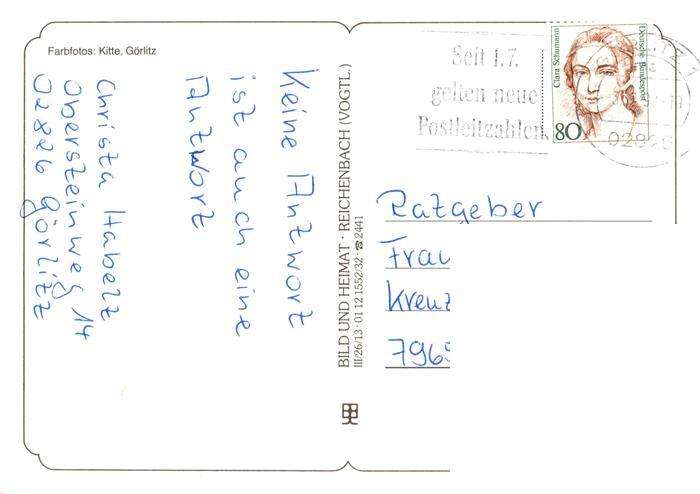 Farbfotos: Kitte, Görlitz
Keine Antwort
ist auch eine
Antwort
Christa Habelt
Obersteinweg 14
02826 Görlitz
BILD UND HEIMAT · REICHENBACH (VOGTL.)
III/26/13 · 01 12 1552/32 · ☎ 2441
Seit 1.7.
gelten neue
Postleitzahlen
Clara Schumann
Deutsche Bundespost
80
Ratgeber
Frau
Kreuz
7969